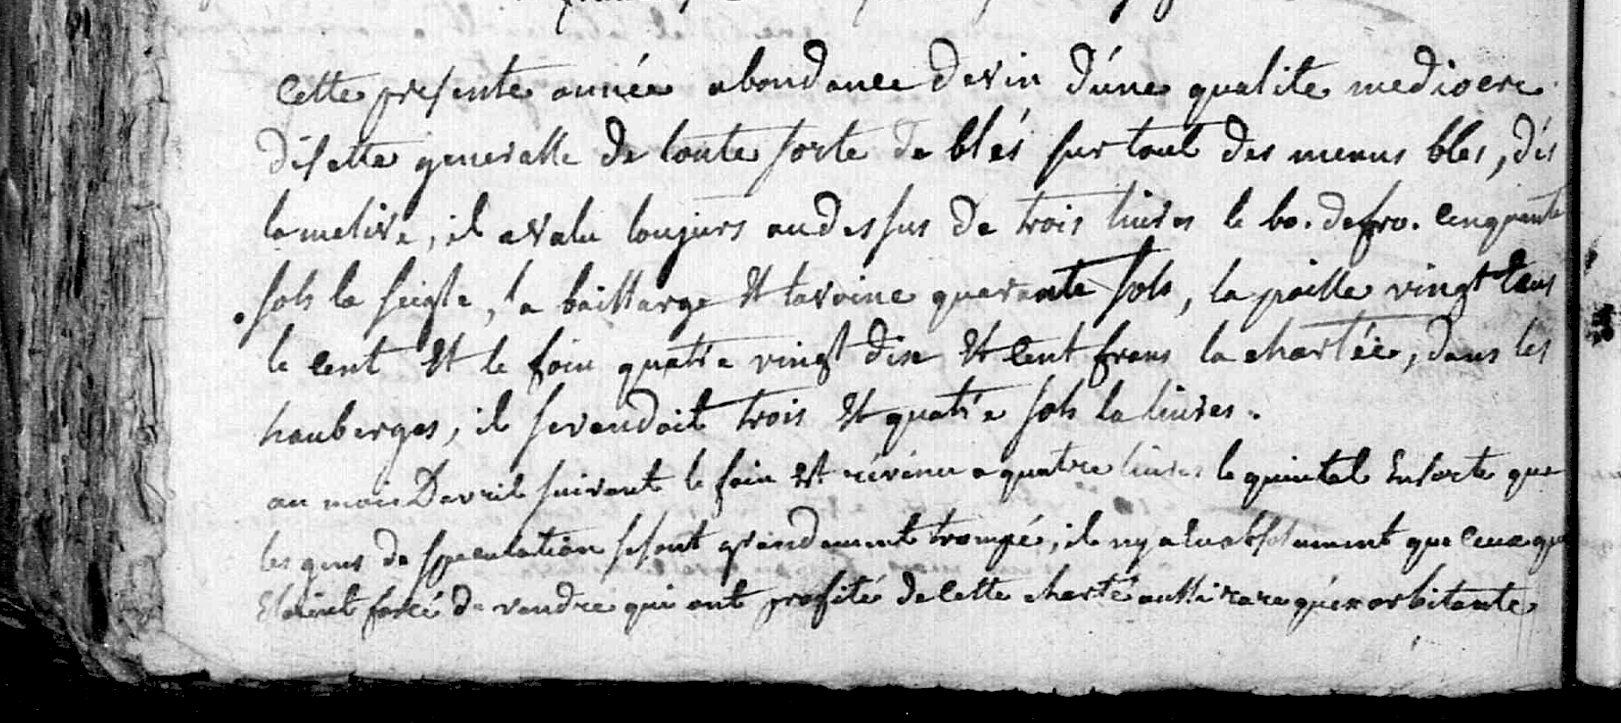 Cette presente année abondance de vin d'une qualite mediocre
disette generalle de toute sorte de blés sur tout des menus bles, dés
la metive, il a valu toujurs au dessus de trois livres le bo. de fro. cinquante
sols la seigle, la baillarge et l'avoine quarante sols, la paille vingt ecus
le cent et le foin quatre vingt dix et cent frans la chartée, dans les
hauberges, il se vendoit trois et quatre sols la livres.
au mois d'avril suivant le foin est révénu a quatre livres le quintal en sorte que
les gens de speculation se sont grandement trompé, il ny a eu absolument que ceux qui
etoint forcé de vendre qui ont profité de cette charté aussi rare qu'exorbitante